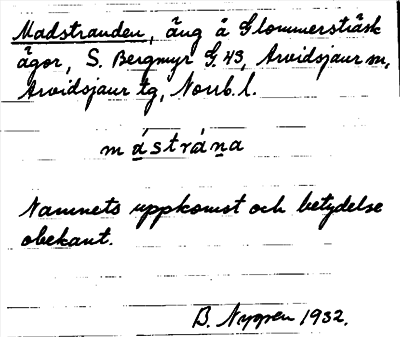 Madstranden, äng å Glommersträsk
ägor, S. Bergmyr G. 43, Arvidsjaur m,
Arvidsjaur tg, Norrb. l.
mástrána
Namnets uppkomst och betydelse
obekant.
B. Nygren 1932.